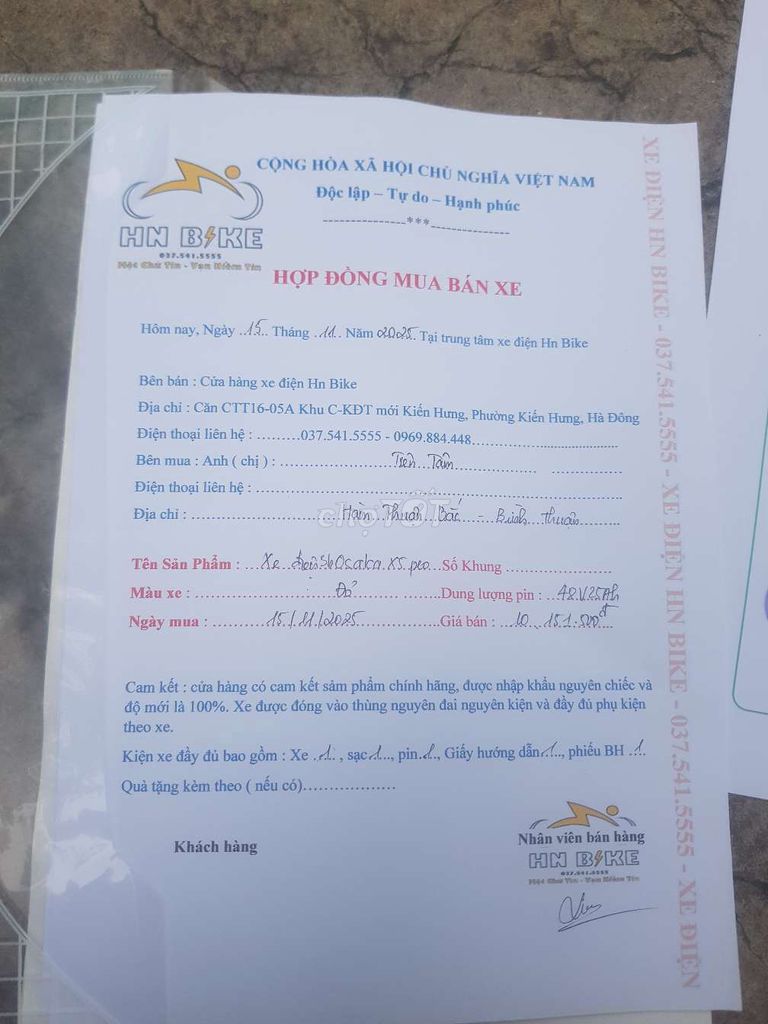 CỘNG HÒA XÃ HỘI CHỦ NGHĨA VIỆT NAM
Độc lập – Tự do – Hạnh phúc
---------------***---------------
HN BIKE
037.541.5555
Một Chữ Tín - Vạn Niềm Tin
HỢP ĐỒNG MUA BÁN XE
Hôm nay, Ngày ..15.. Tháng ..11.. Năm 2025.. Tại trung tâm xe điện Hn Bike
Bên bán : Cửa hàng xe điện Hn Bike
Địa chỉ : Căn CTT16-05A Khu C-KĐT mới Kiến Hưng, Phường Kiến Hưng, Hà Đông
Điện thoại liên hệ : .........037.541.5555 - 0969.884.448...................................
Bên mua : Anh ( chị ) : ........................ Tâm
Điện thoại liên hệ : ...........................................................................
Địa chỉ : ............................ Hàm Thuận Bắc - Bình Thuận..........
chợTỐT
Tên Sản Phẩm : ...Xe Osaka X5 pro...Số Khung ........................
Màu xe : ........................ Đỏ ...................Dung lượng pin : ..48V25Ah
Ngày mua : ............15/11/2025..................Giá bán : ...10.151.500đ
Cam kết : cửa hàng có cam kết sảm phẩm chính hãng, được nhập khẩu nguyên chiếc và
độ mới là 100%. Xe được đóng vào thùng nguyên đai nguyên kiện và đầy đủ phụ kiện
theo xe.
Kiện xe đầy đủ bao gồm : Xe ..1.., sạc 1..., pin.1.., Giấy hướng dẫn.1..., phiếu BH .1.
Quà tặng kèm theo ( nếu có)......................
Khách hàng
Nhân viên bán hàng
HN BIKE
037.541.5555
Một Chữ Tín - Vạn Niềm Tin
XE ĐIỆN HN BIKE - 037.541.5555 - XE ĐIỆN HN BIKE - 037.541.5555 - XE ĐIỆN